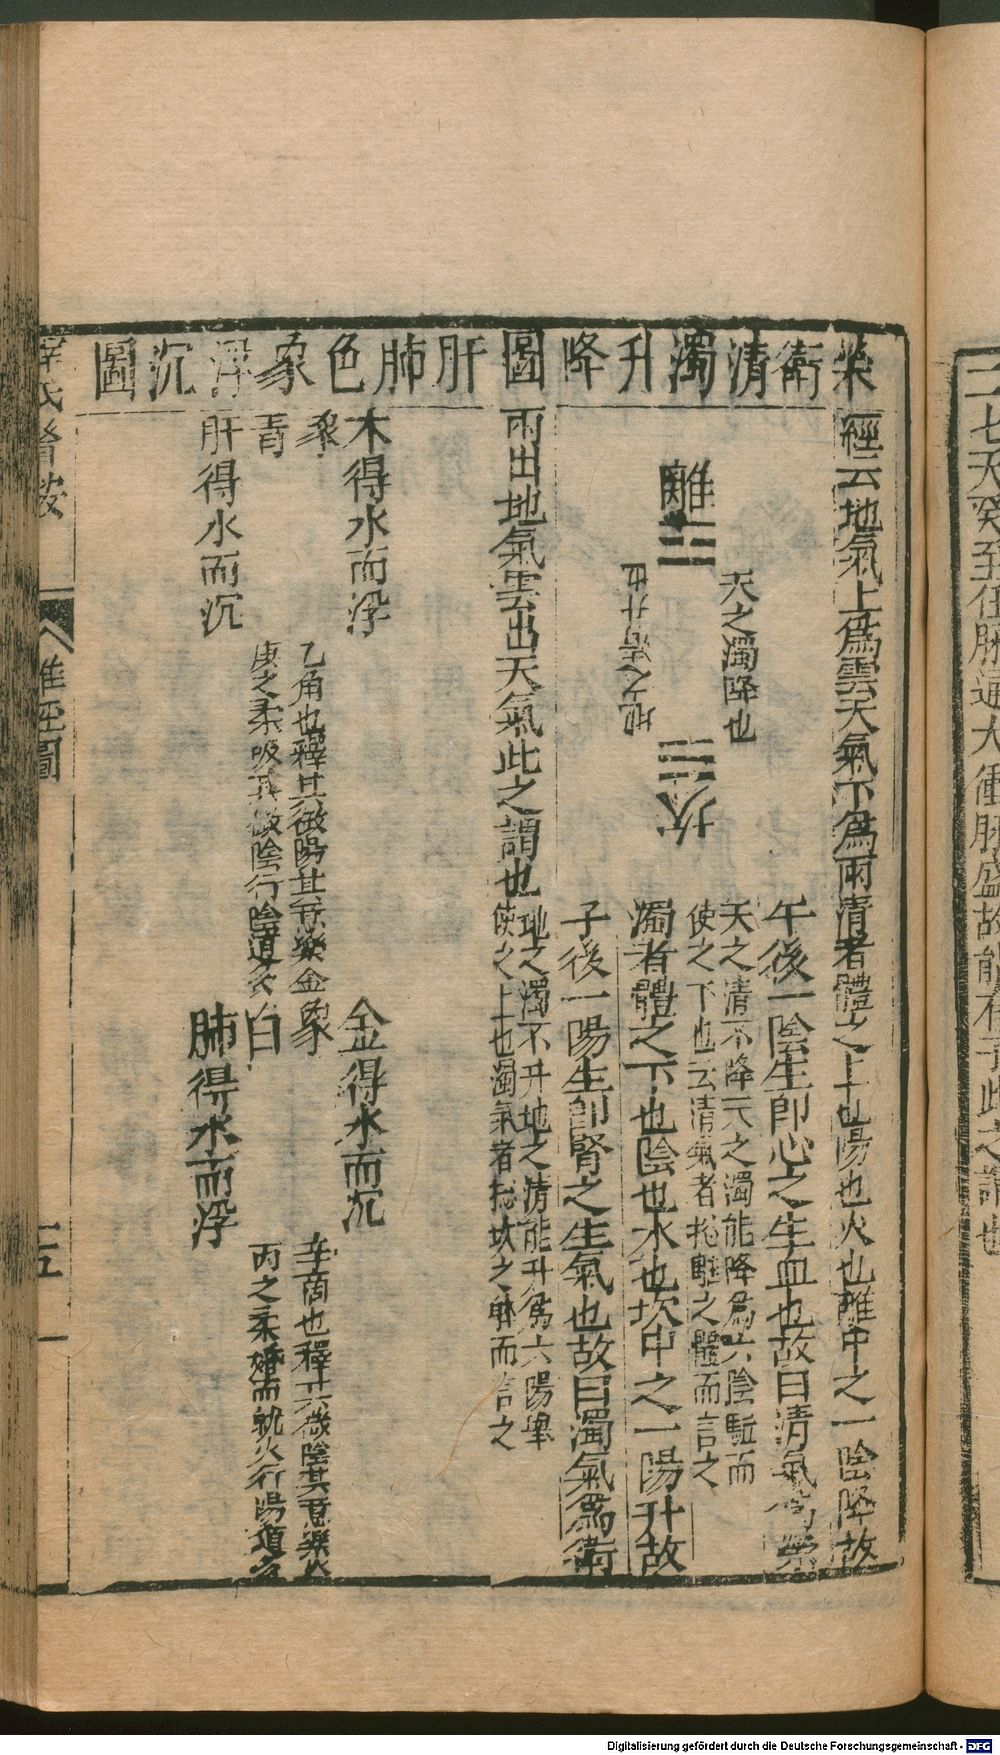 二七天癸至任脉通太衝脉盛故能有子此之謂也
榮衛清濁升降圖
經云地氣上爲雲天氣下爲雨清者體之上也陽也火也離中之一陰降故
午後一陰生卽心之生血也故曰清氣爲榮
天之清不降天之濁能降爲六陰駈而
使之下也云清氣者挩離之體而言之
離
天之濁降也
地之清升也
坎
濁者體之下也陰也水也坎中之一陽升故
子後一陽生卽腎之生氣也故曰濁氣爲衛
地之濁不升地之清能升爲六陽舉
使之上也濁氣者挩坎之體而言之
雨出地氣雲出天氣此之謂也
肝肺色象浮沉圖
木得水而浮
象
青
肝得水而沉
乙角也釋其微陽其意樂金
庚之柔吸其微陰行陰道衣
金得水而沉
象
白
肺得水而浮
辛商也釋其微陰其意樂火
丙之柔婚而就火行陽道衣
薛氏醫按
難經圖
十五
Digitalisierung gefördert durch die Deutsche Forschungsgemeinschaft - DFG